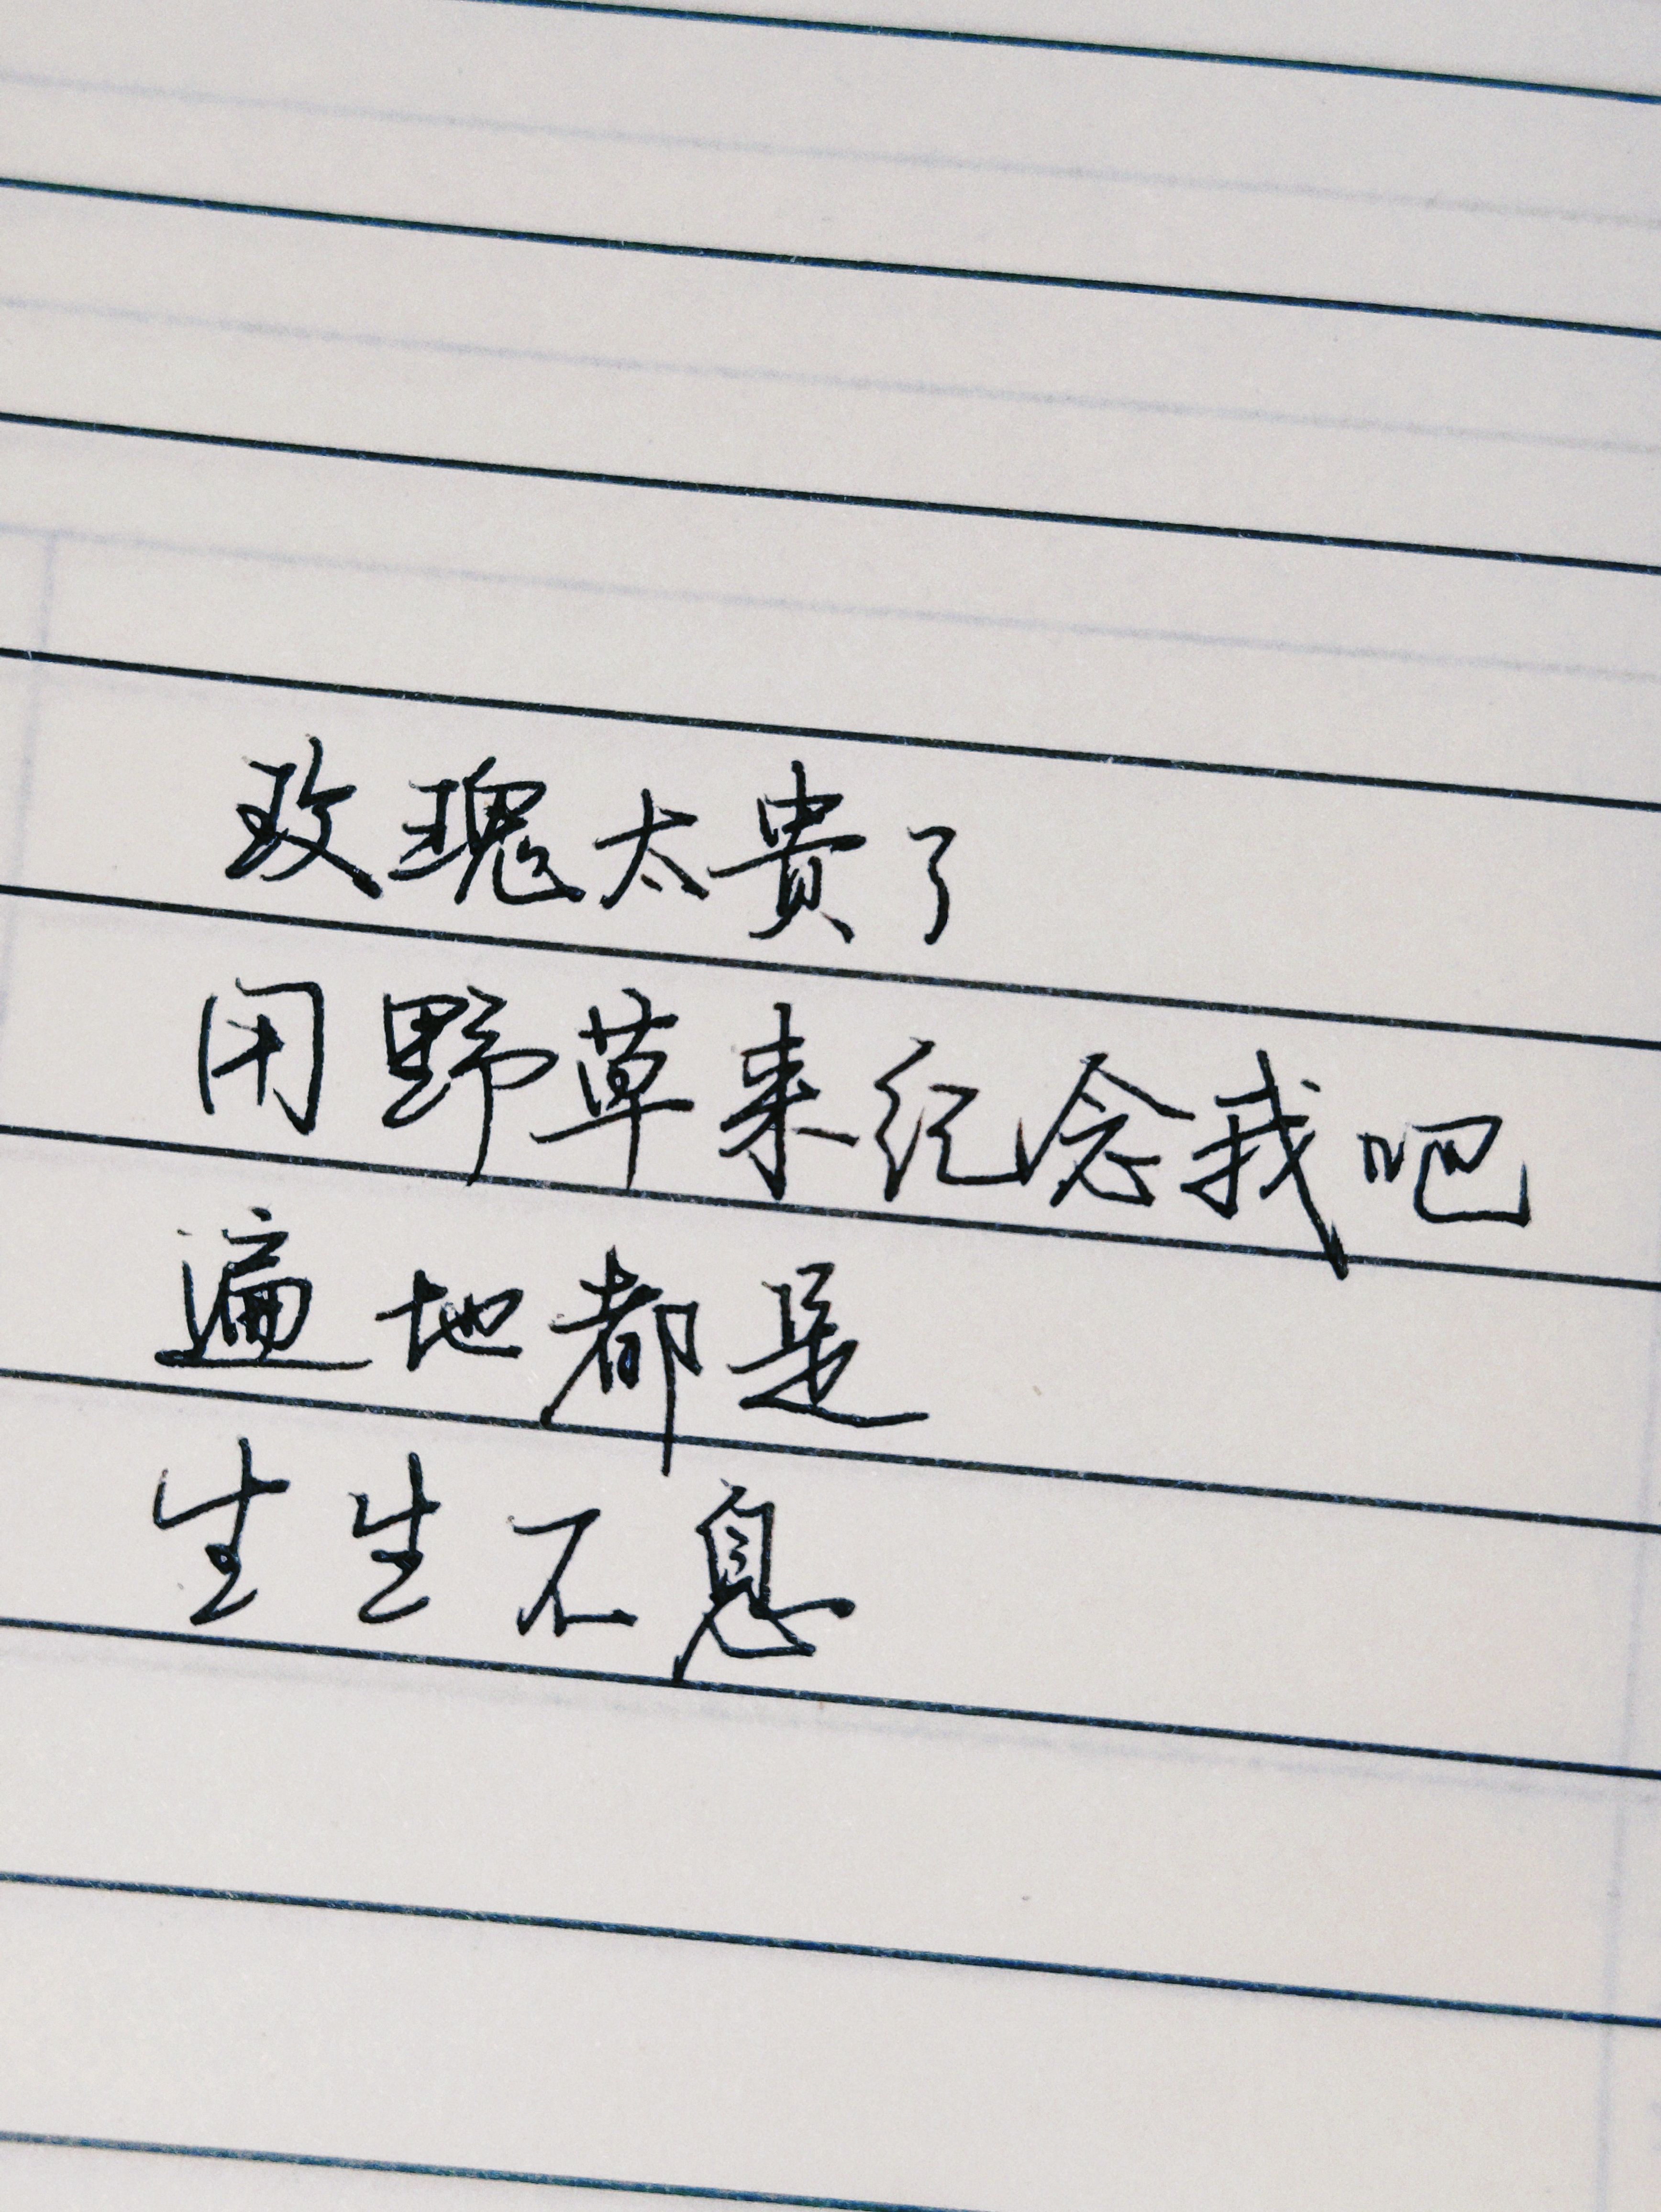 玫瑰太贵了
用野草来纪念我吧
遍地都是
生生不息